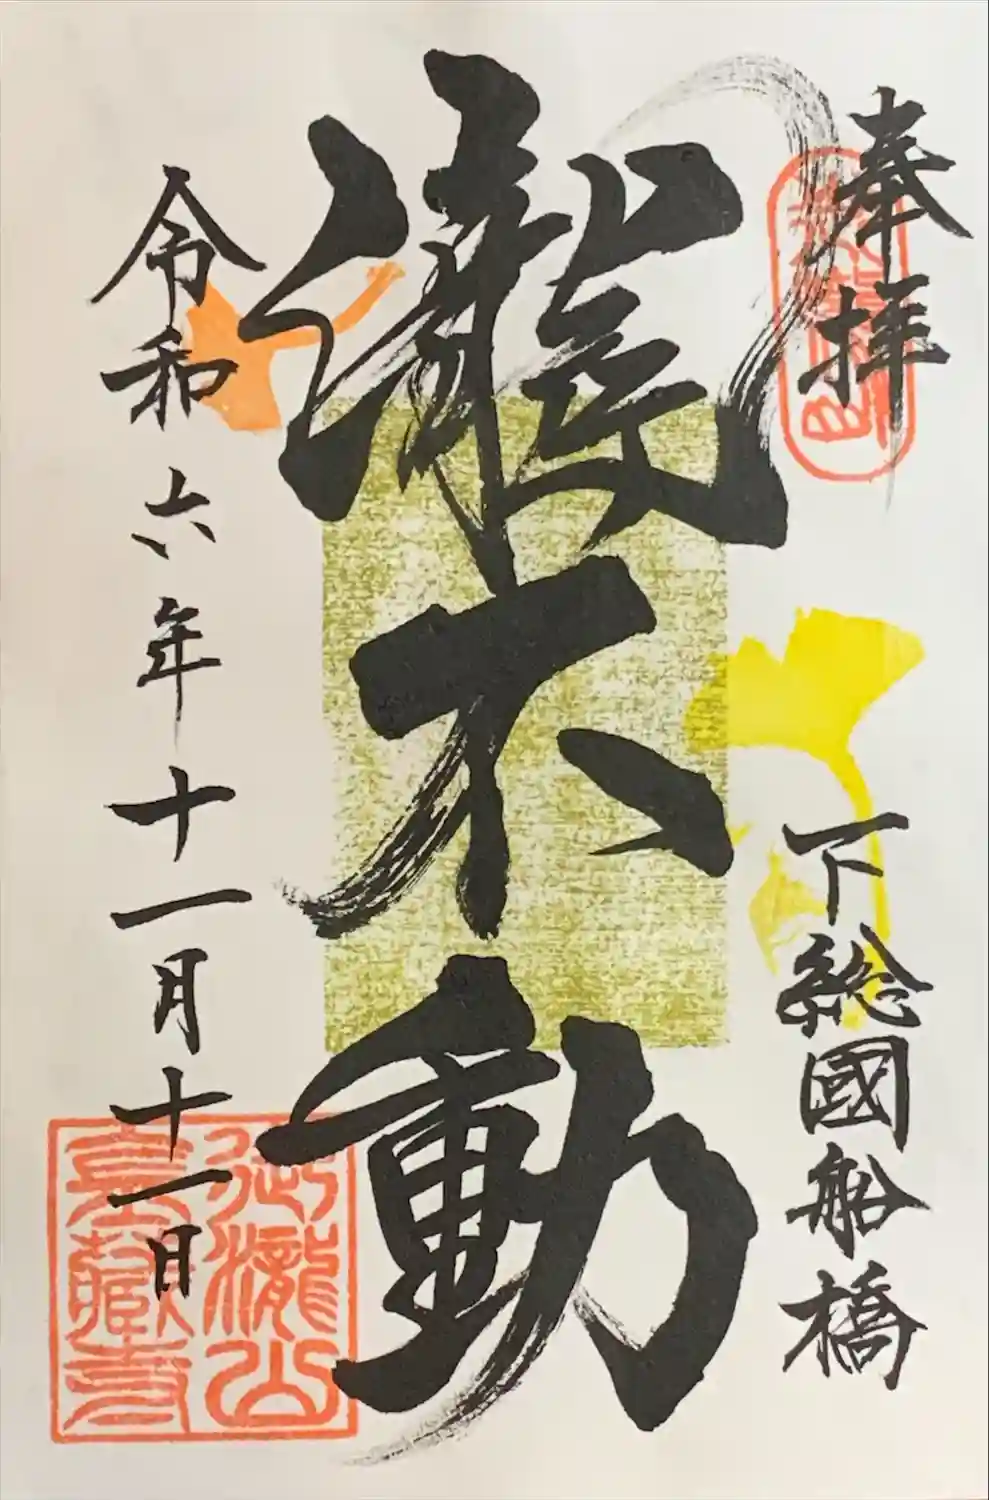 奉拝
下総國船橋
瀧不動
令和六年十一月十一日
御瀧山
金蔵寺